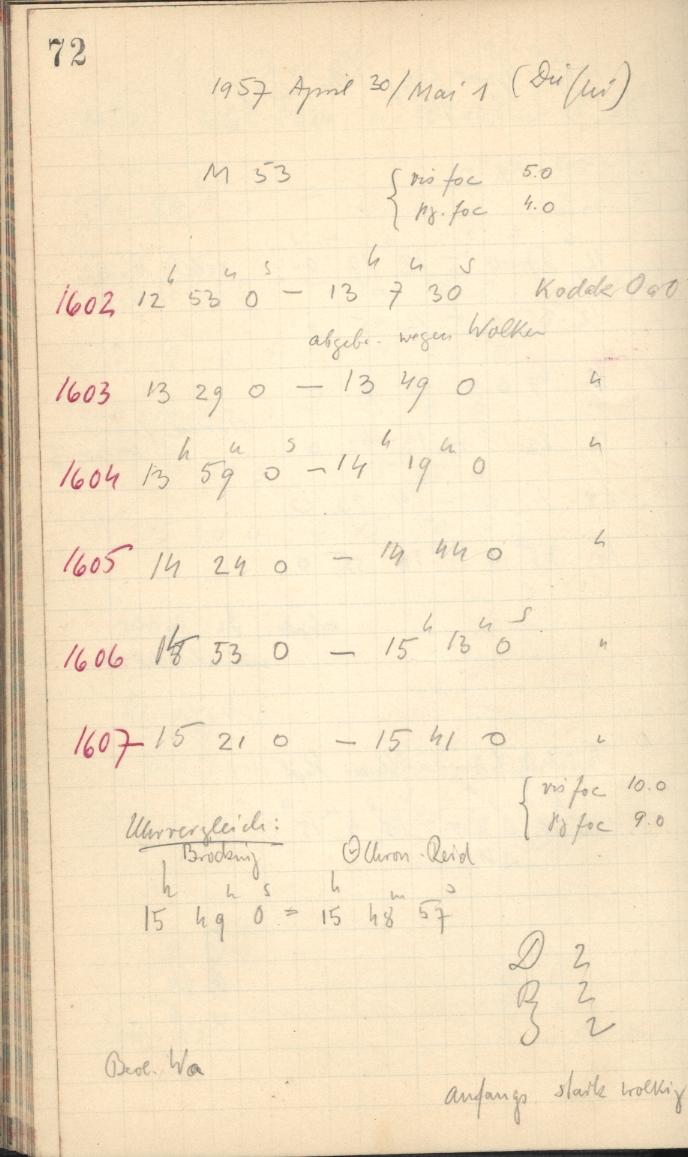 72
1957 April 30/Mai 1 (Di/Mi)
M 53 { vis foc 5.0
pg. foc 4.0
h m s h m s
1602 12 53 0 — 13 7 30 Kodak OaO
abgebr. wegen Wolken
1603 13 29 0 — 13 49 0 "
h m s h m
1604 13 59 0 — 14 19 0 "
1605 14 24 0 — 14 44 0 "
h m s
1606 14 53 0 — 15 13 0 "
1607 15 21 0 — 15 41 0 "
{ vis foc 10.0
pg foc 9.0
Uhrvergleich:
Bröcking Chron. Reid
h m s h m s
15 49 0 = 15 48 57
D 2
R 2
S 2
Beob. Wa
anfangs stark wolkig